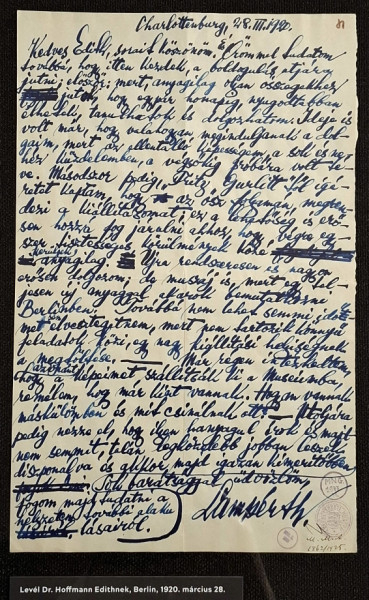 Charlottenburg, 28. III. 1920.
Kedves Edith, sorait köszönöm és örömmel tudatom
továbbá, hogy itten kezdek, a boldogulás útjára
jutni; először: mert, anyagilag olyan összegekhez
jutok, hogy egypár hónapig, nyugodtabban
élhetek, tanulhatok és dolgozhatom. Ideje is
volt már, hogy valahogyan meginduljanak a dol-
gaim, mert az ellentálló képességem, a sok és ne-
héz küzdelemben, a végsőkig próbára volt té-
ve. Másodszor pedig „Fritz" Gurlitt-tól ígé-
retet kaptam, hogy az ősz folyamán, megren-
dezi a kiállításomat; ez a lehetőség is erő-
sen hozzá fog járulni ahhoz, hogy, végre egy-
szer tisztességes körülmények közé
kerüljek anyagilag. Újra rendszeresen és nagyon
erősen dolgozom; de muszáj is, mert egy tel-
jesen új anyaggal akarok bemutatkozni
Berlinben. Továbbá nem lehet semmi időt
sem elvesztegetnem, mert nem tartozik könnyű
feladatok közé, egy nagy kiállítási helyiségnek
a megtöltése. Már régen értesültem,
hogy a képeimet szállítsák ki a Múzeumba,
remélem, hogy már kint vannak. Hogyan vannak
máskülönben és mit csinálnak ott? Utoljára
pedig nézze el, hogy ilyen hanyagul írok és majd
nem semmit, talán legközelebb jobban leszek
disponálva és akkor, majd igazán kimerítőbben
Sok barátsággal üdvözlöm,
fogom majd tudatni a
helyzetem további alaku
lásairól.
Lampérth.
Levél Dr. Hoffmann Edithnek, Berlin, 1920. március 28.